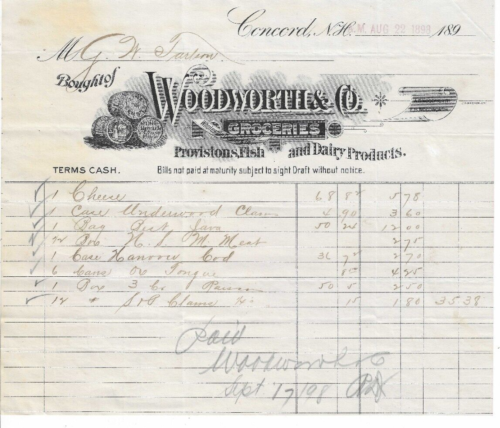 Concord, N.H. AUG 22 1898 189
M G. W. Tarlson
Bought of
WOODWORTH & CO.
GROCERIES
Provisions, Fish and Dairy Products.
TERMS CASH. Bills not paid at maturity subject to sight Draft without notice.
1 Cheese 68 8½ 5 78
1 Case Underwood Clams 4 90 3 60
1 Bag Java 50 24 12 00
2 Box M. Meat 2 75
1 Case Hanover Cod 36 7½ 2 70
6 Cans Ox Tongue 4 25
1 Box 3 Cr. 50 5 2 50
12 " Clams 15 1 80 35 38
Paid
Woodworth & Co
Sept 17/98